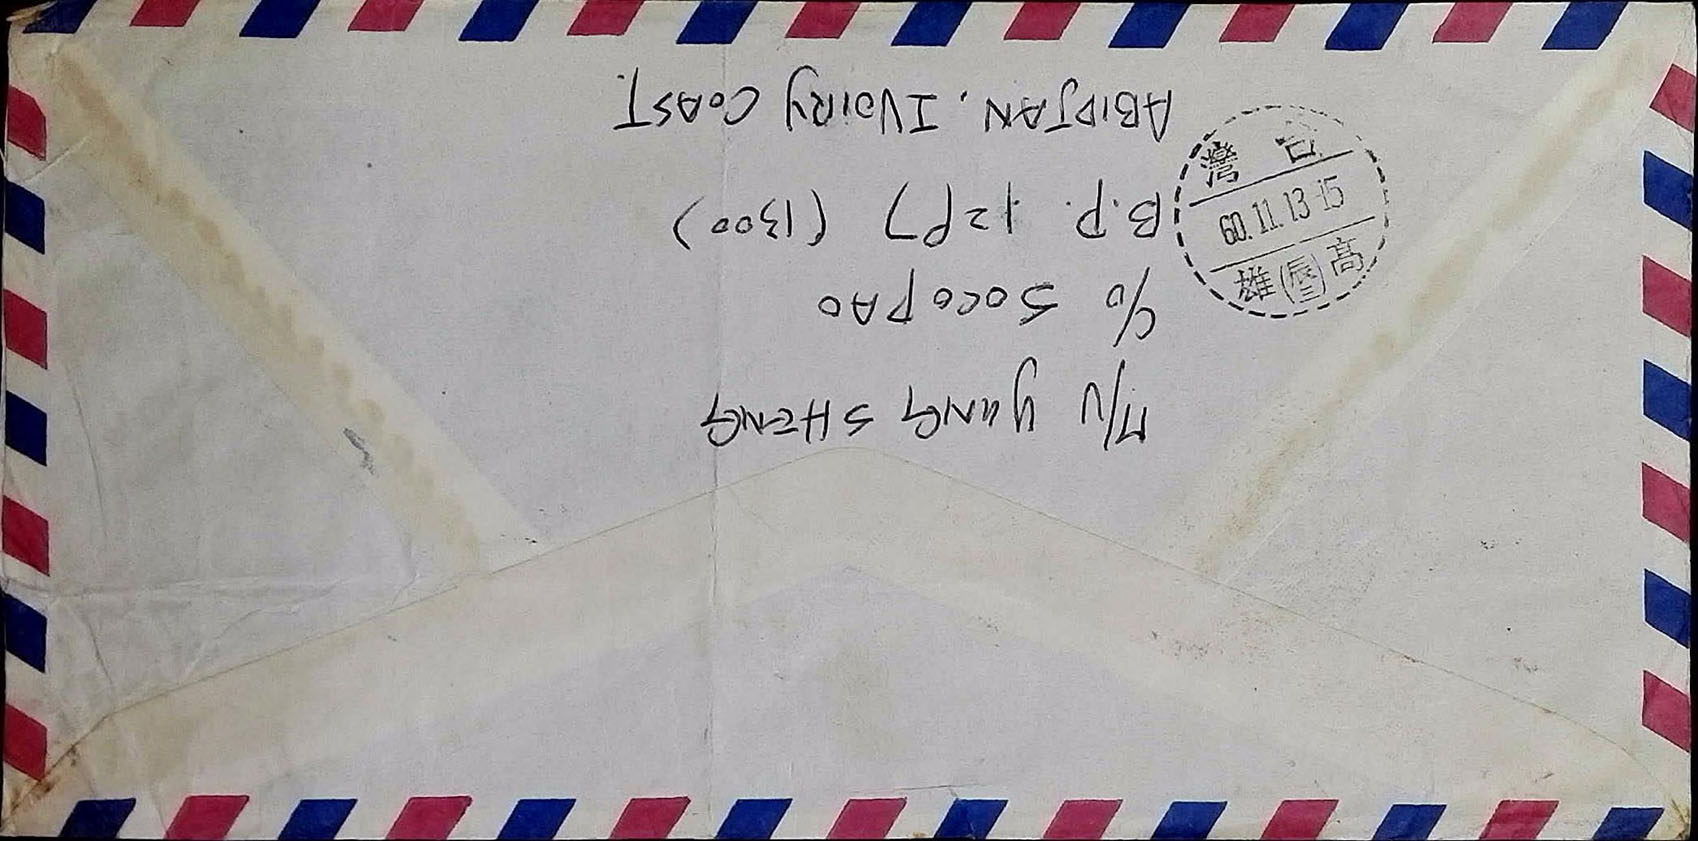 M/V YUNG SHENG
c/o SOCOPAO
B.P. 1297 (1300)
ABIDJAN, IVOIRY COAST.
台灣
60.11.13 15
高雄